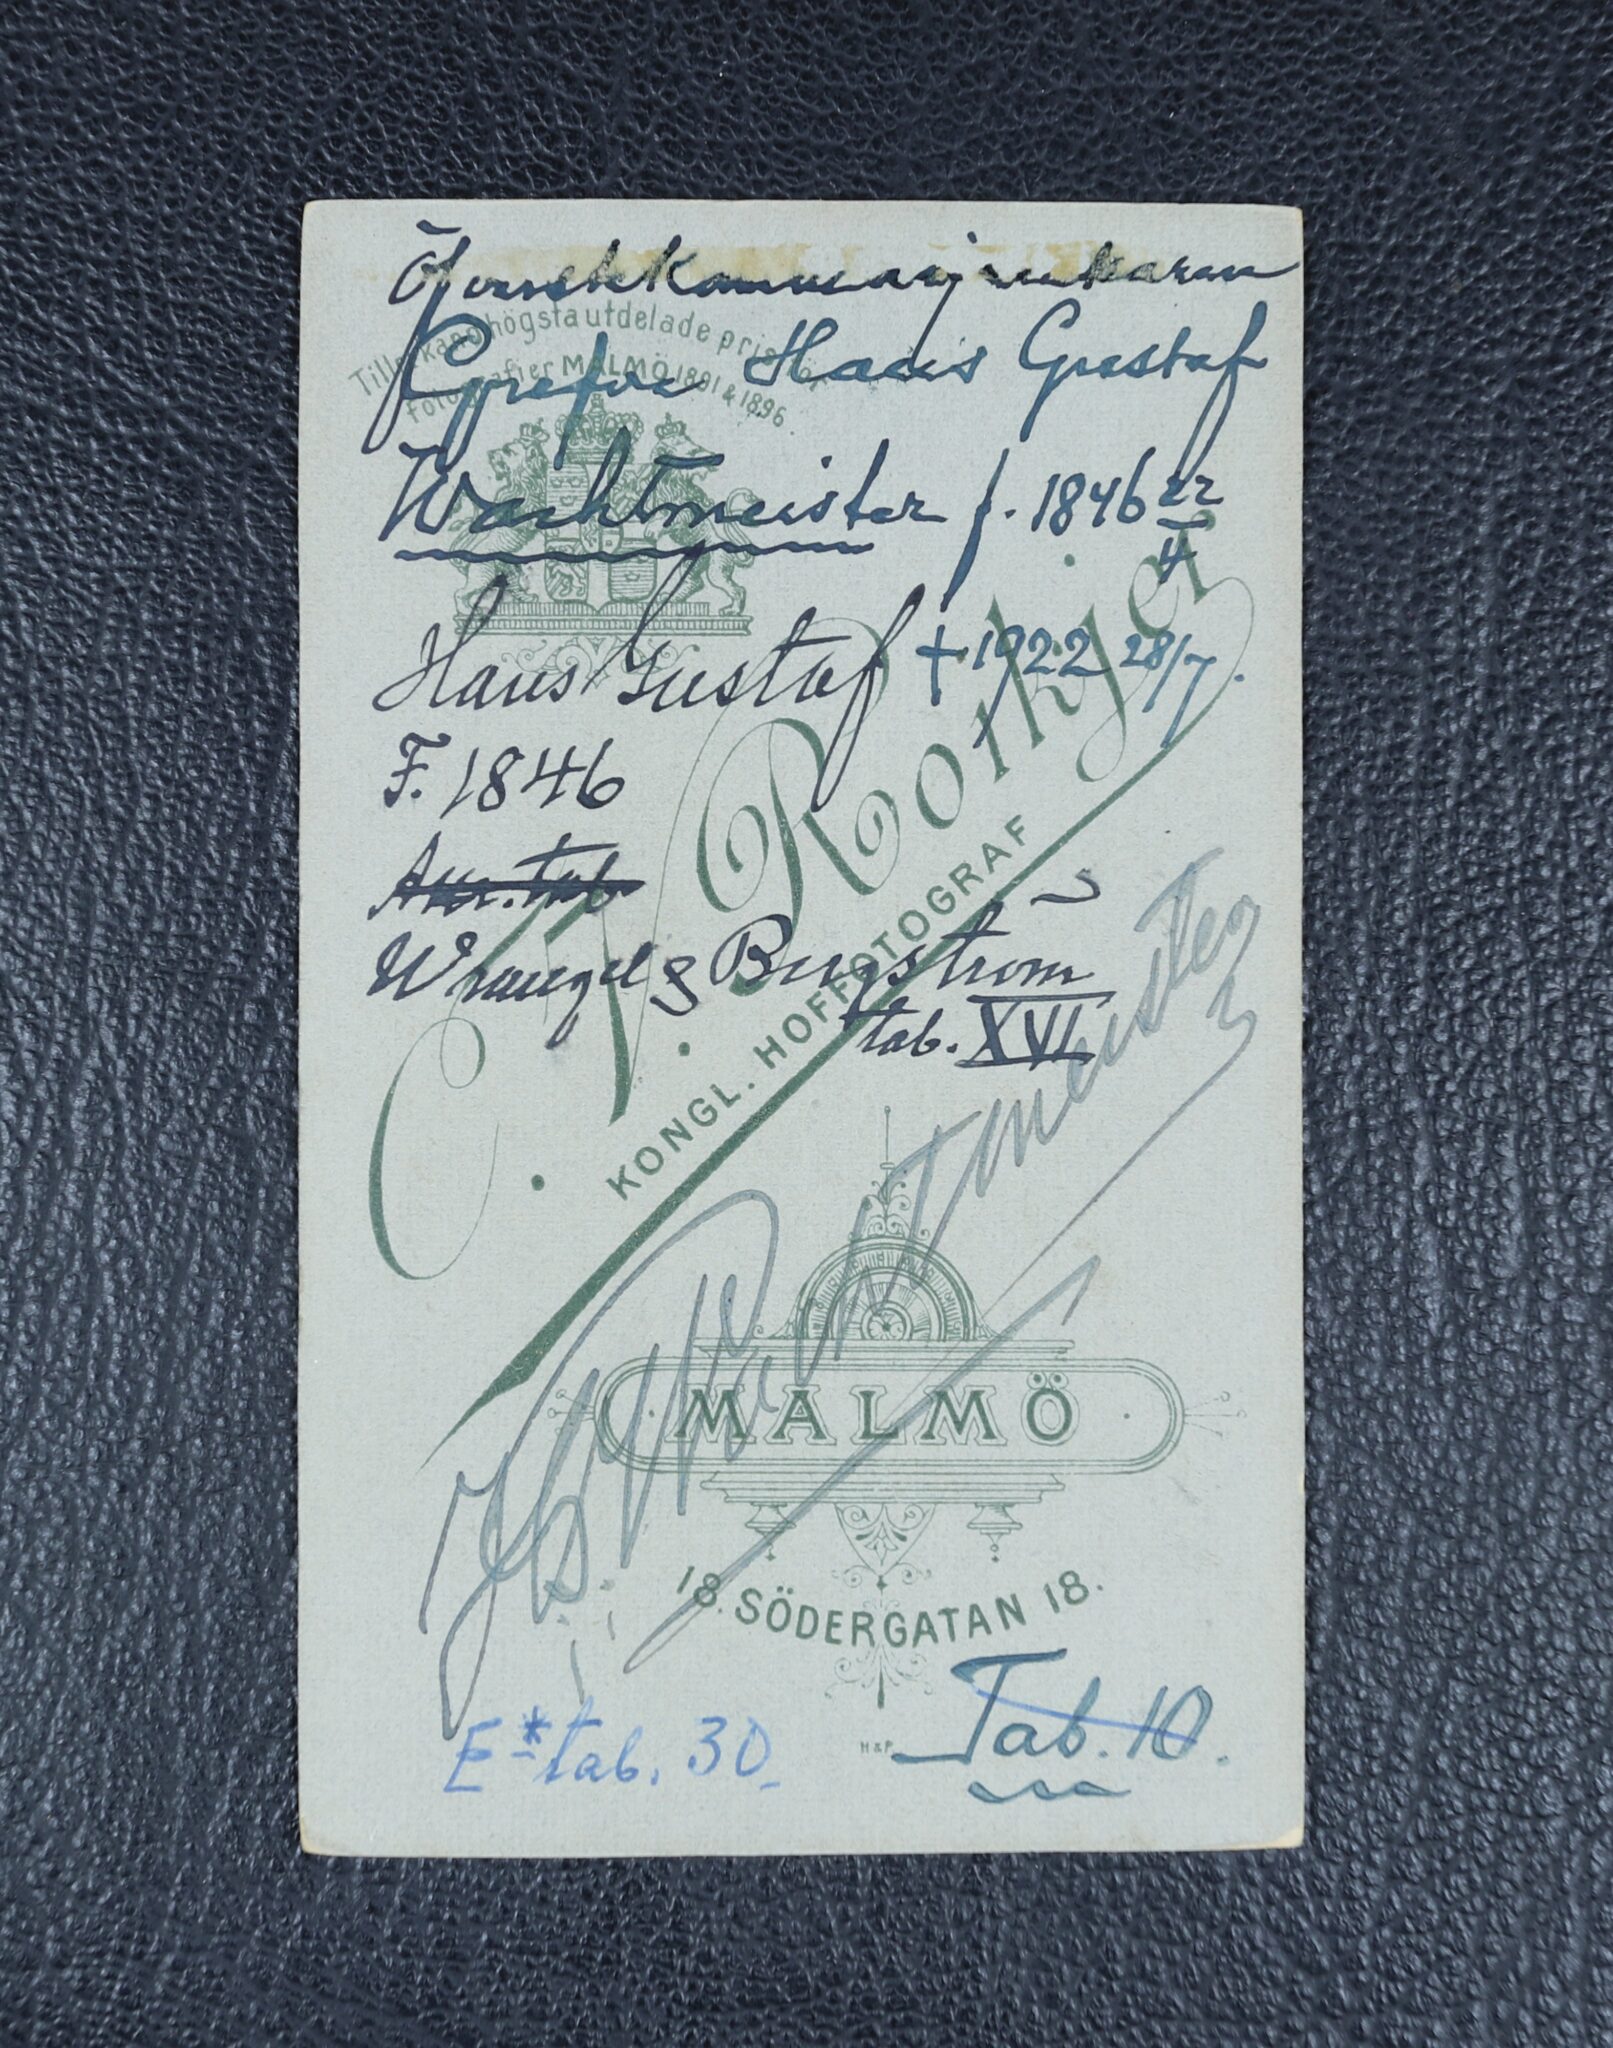 Grefve Hans Gustaf
Wachtmeister f. 1846 22/4
† 1922 28/7.
Hans Gustaf
F. 1846
Wrangel & Bergström
tab. XVI
högsta utdelade pris för
fotografier MALMÖ 1891 & 1896
C. V. Roikjer
KONGL. HOFFOTOGRAF
Wachtmeister
MALMÖ
18. SÖDERGATAN 18.
H & P
E* tab. 30
Tab. 10.